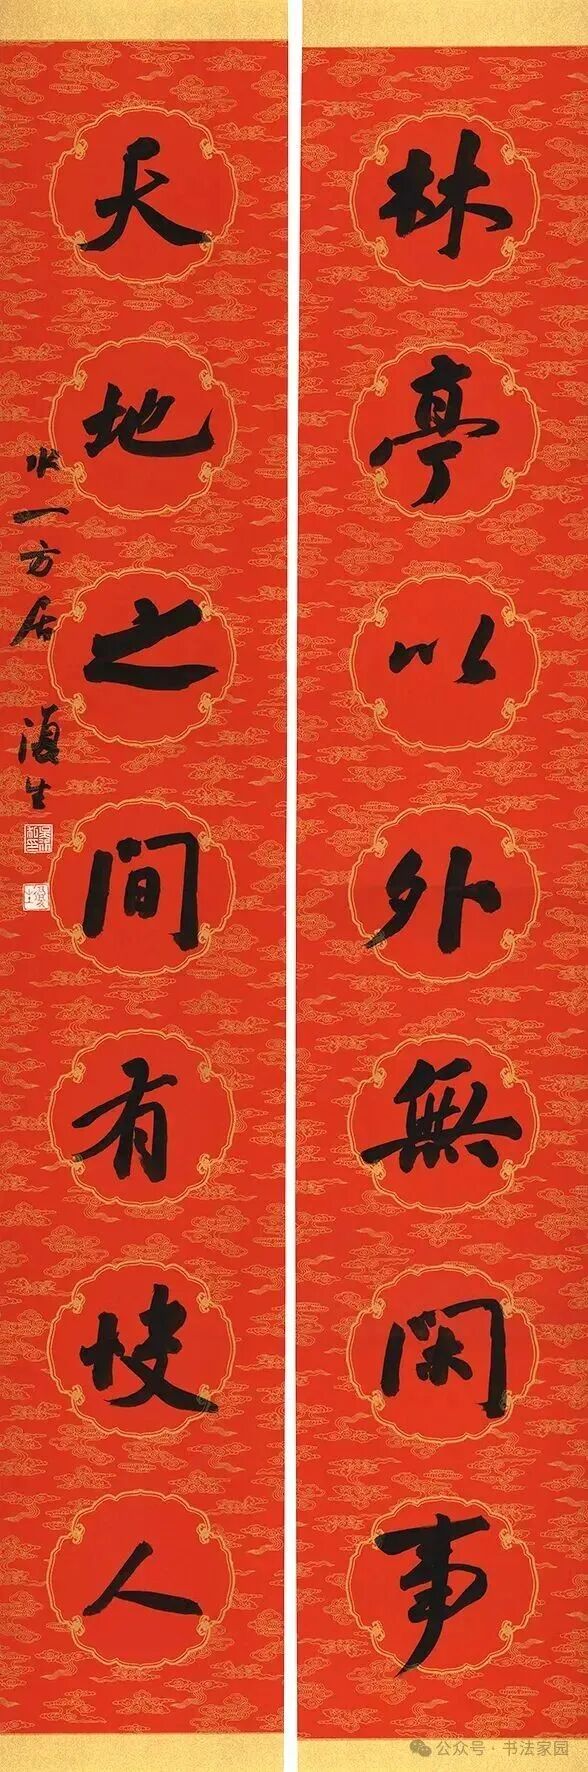 林亭以外無閑事
天地之間有故人
水一方居 漫生
公众号·书法家园